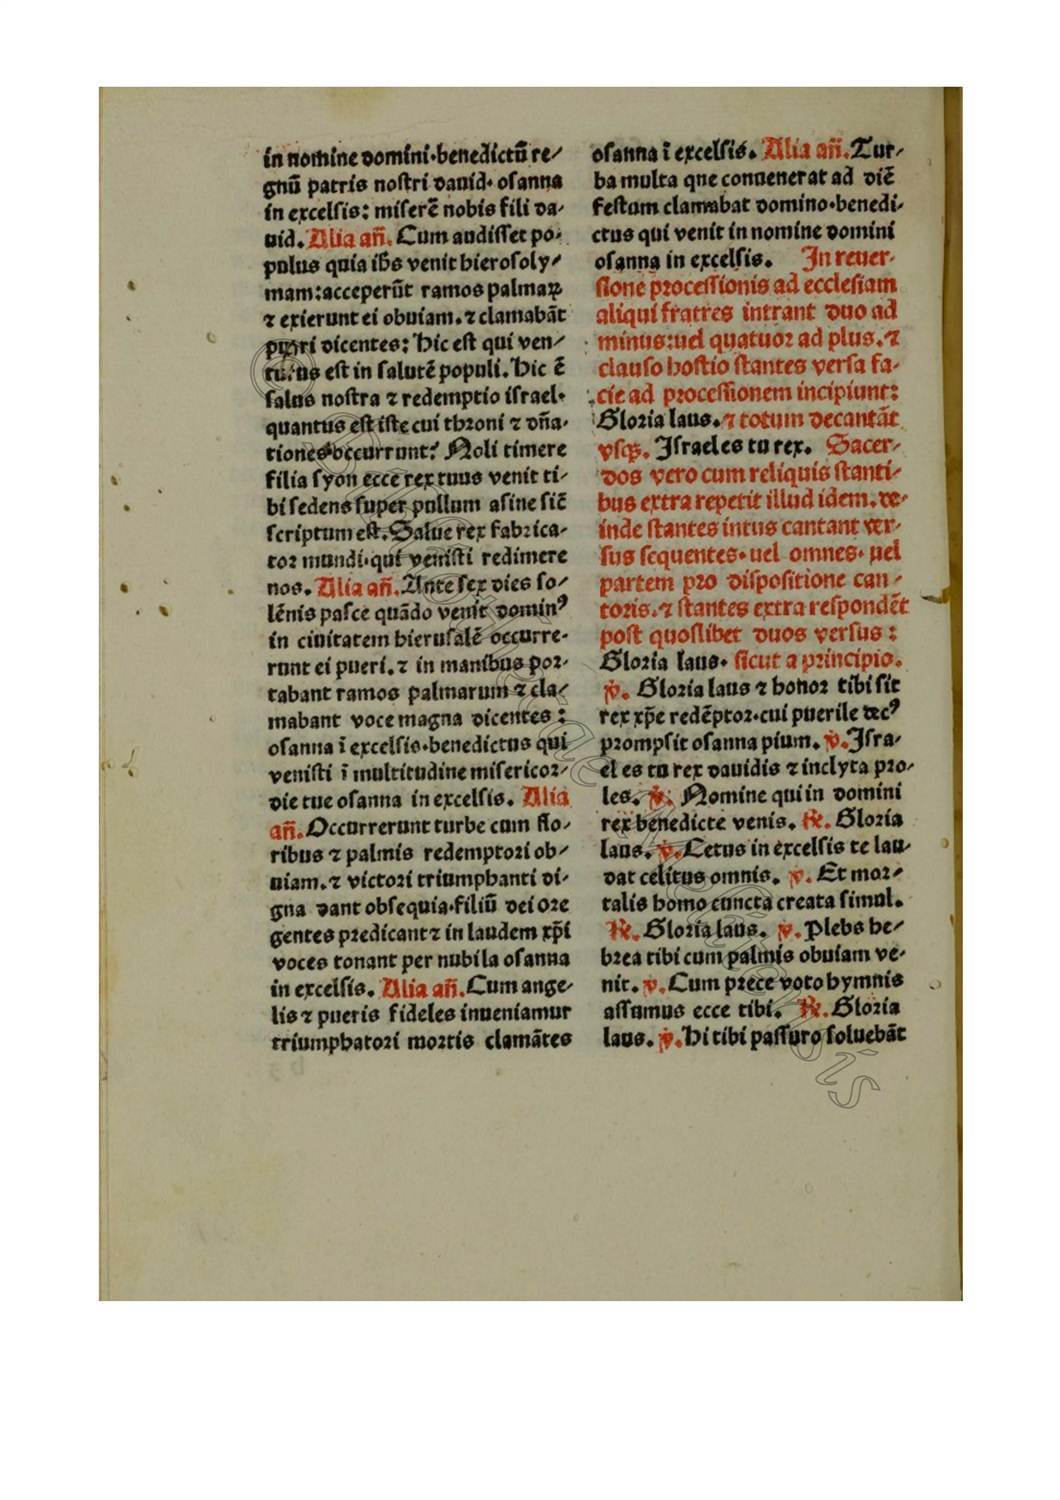 in nomine domini·benedictū re/
gnū patris nostri dauid· osanna
in excelsis: miserē nobis fili da/
uid. Alia añ. Cum audisset po/
pulus quia ihs venit hierosoly/
mam:acceperūt ramos palmaꝝ
⁊ exierunt ei obuiam.⁊ clamabāt
pueri dicentes: Hic est qui ven/
turus est in salutē populi. Hic ē
salus nostra ⁊ redemptio israel·
quantus est iste cui throni ⁊ dña/
tiones occurrunt? Noli timere
filia syon ecce rex tuus venit ti/
bi sedens super pullum asine sic̄
scriptum est. Salue rex fabrica/
tor mundi·qui venisti redimere
nos. Alia añ. Ante sex dies so/
lēnis pasce quādo venit dominꝰ
in ciuitatem hierusalē occurre/
runt ei pueri.⁊ in manibus por/
tabant ramos palmarum ⁊ cla/
mabant voce magna dicentes:
osanna ī excelsis·benedictus qui
venisti ī multitudine misericor/
die tue osanna in excelsis. Alia
añ. Occurrerunt turbe cum flo/
ribus ⁊ palmis redemptori ob/
uiam.⁊ victori triumphanti di/
gna dant obsequia·filiū dei ore
gentes predicant⁊ in laudem xp̄i
voces tonant per nubila osanna
in excelsis. Alia añ. Cum ange/
lis ⁊ pueris fideles inueniamur
triumphatori mortis clamātes
osanna ī excelsis. Alia añ. Tur/
ba multa que conuenerat ad diē
festum clamabat domino·benedi/
ctus qui venit in nomine domini
osanna in excelsis. In reuer/
sione processionis ad ecclesiam
aliqui fratres intrant duo ad
minus:uel quatuor ad plus.⁊
clauso hostio stantes versa fa/
cie ad processionem incipiunt:
Gloria laus.⁊ totum decantāt
vsqꝫ. Israel es tu rex. Sacer/
dos vero cum reliquis stanti/
bus extra repetit illud idem.de/
inde stantes intus cantant ver/
sus sequentes· uel omnes· uel
partem pro dispositione can/
toris.⁊ stantes extra respondēt
post quoslibet duos versus:
Gloria laus· sicut a principio.
℣. Gloria laus ⁊ honor tibi sit
rex xp̄e redēptor·cui puerile decꝰ
prompsit osanna pium. ℣. Isra/
el es tu rex dauidis ⁊ inclyta pro/
les. ℣. Nomine qui in domini
rex benedicte venis. ℟. Gloria
laus. ℣. Cetus in excelsis te lau/
dat celitus omnis. ℣. Et mor/
talis homo cuncta creata simul.
℟. Gloria laus. ℣. Plebs he/
brea tibi cum palmis obuiam ve/
nit. ℣. Cum prece voto hymnis
assumus ecce tibi. ℟. Gloria
laus. ℣. Hi tibi passuro soluebāt